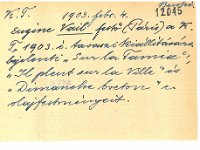 K.T. 1903. febr. 4. 12045
Eugène Vail festő (Páris) a K.
T. 1903. i. tavaszi kiállítására
bejelenti „Sur la Tamise",
„Il pleut sur la Ville" és
„Dimanche breton" c.
olajfestményeit.